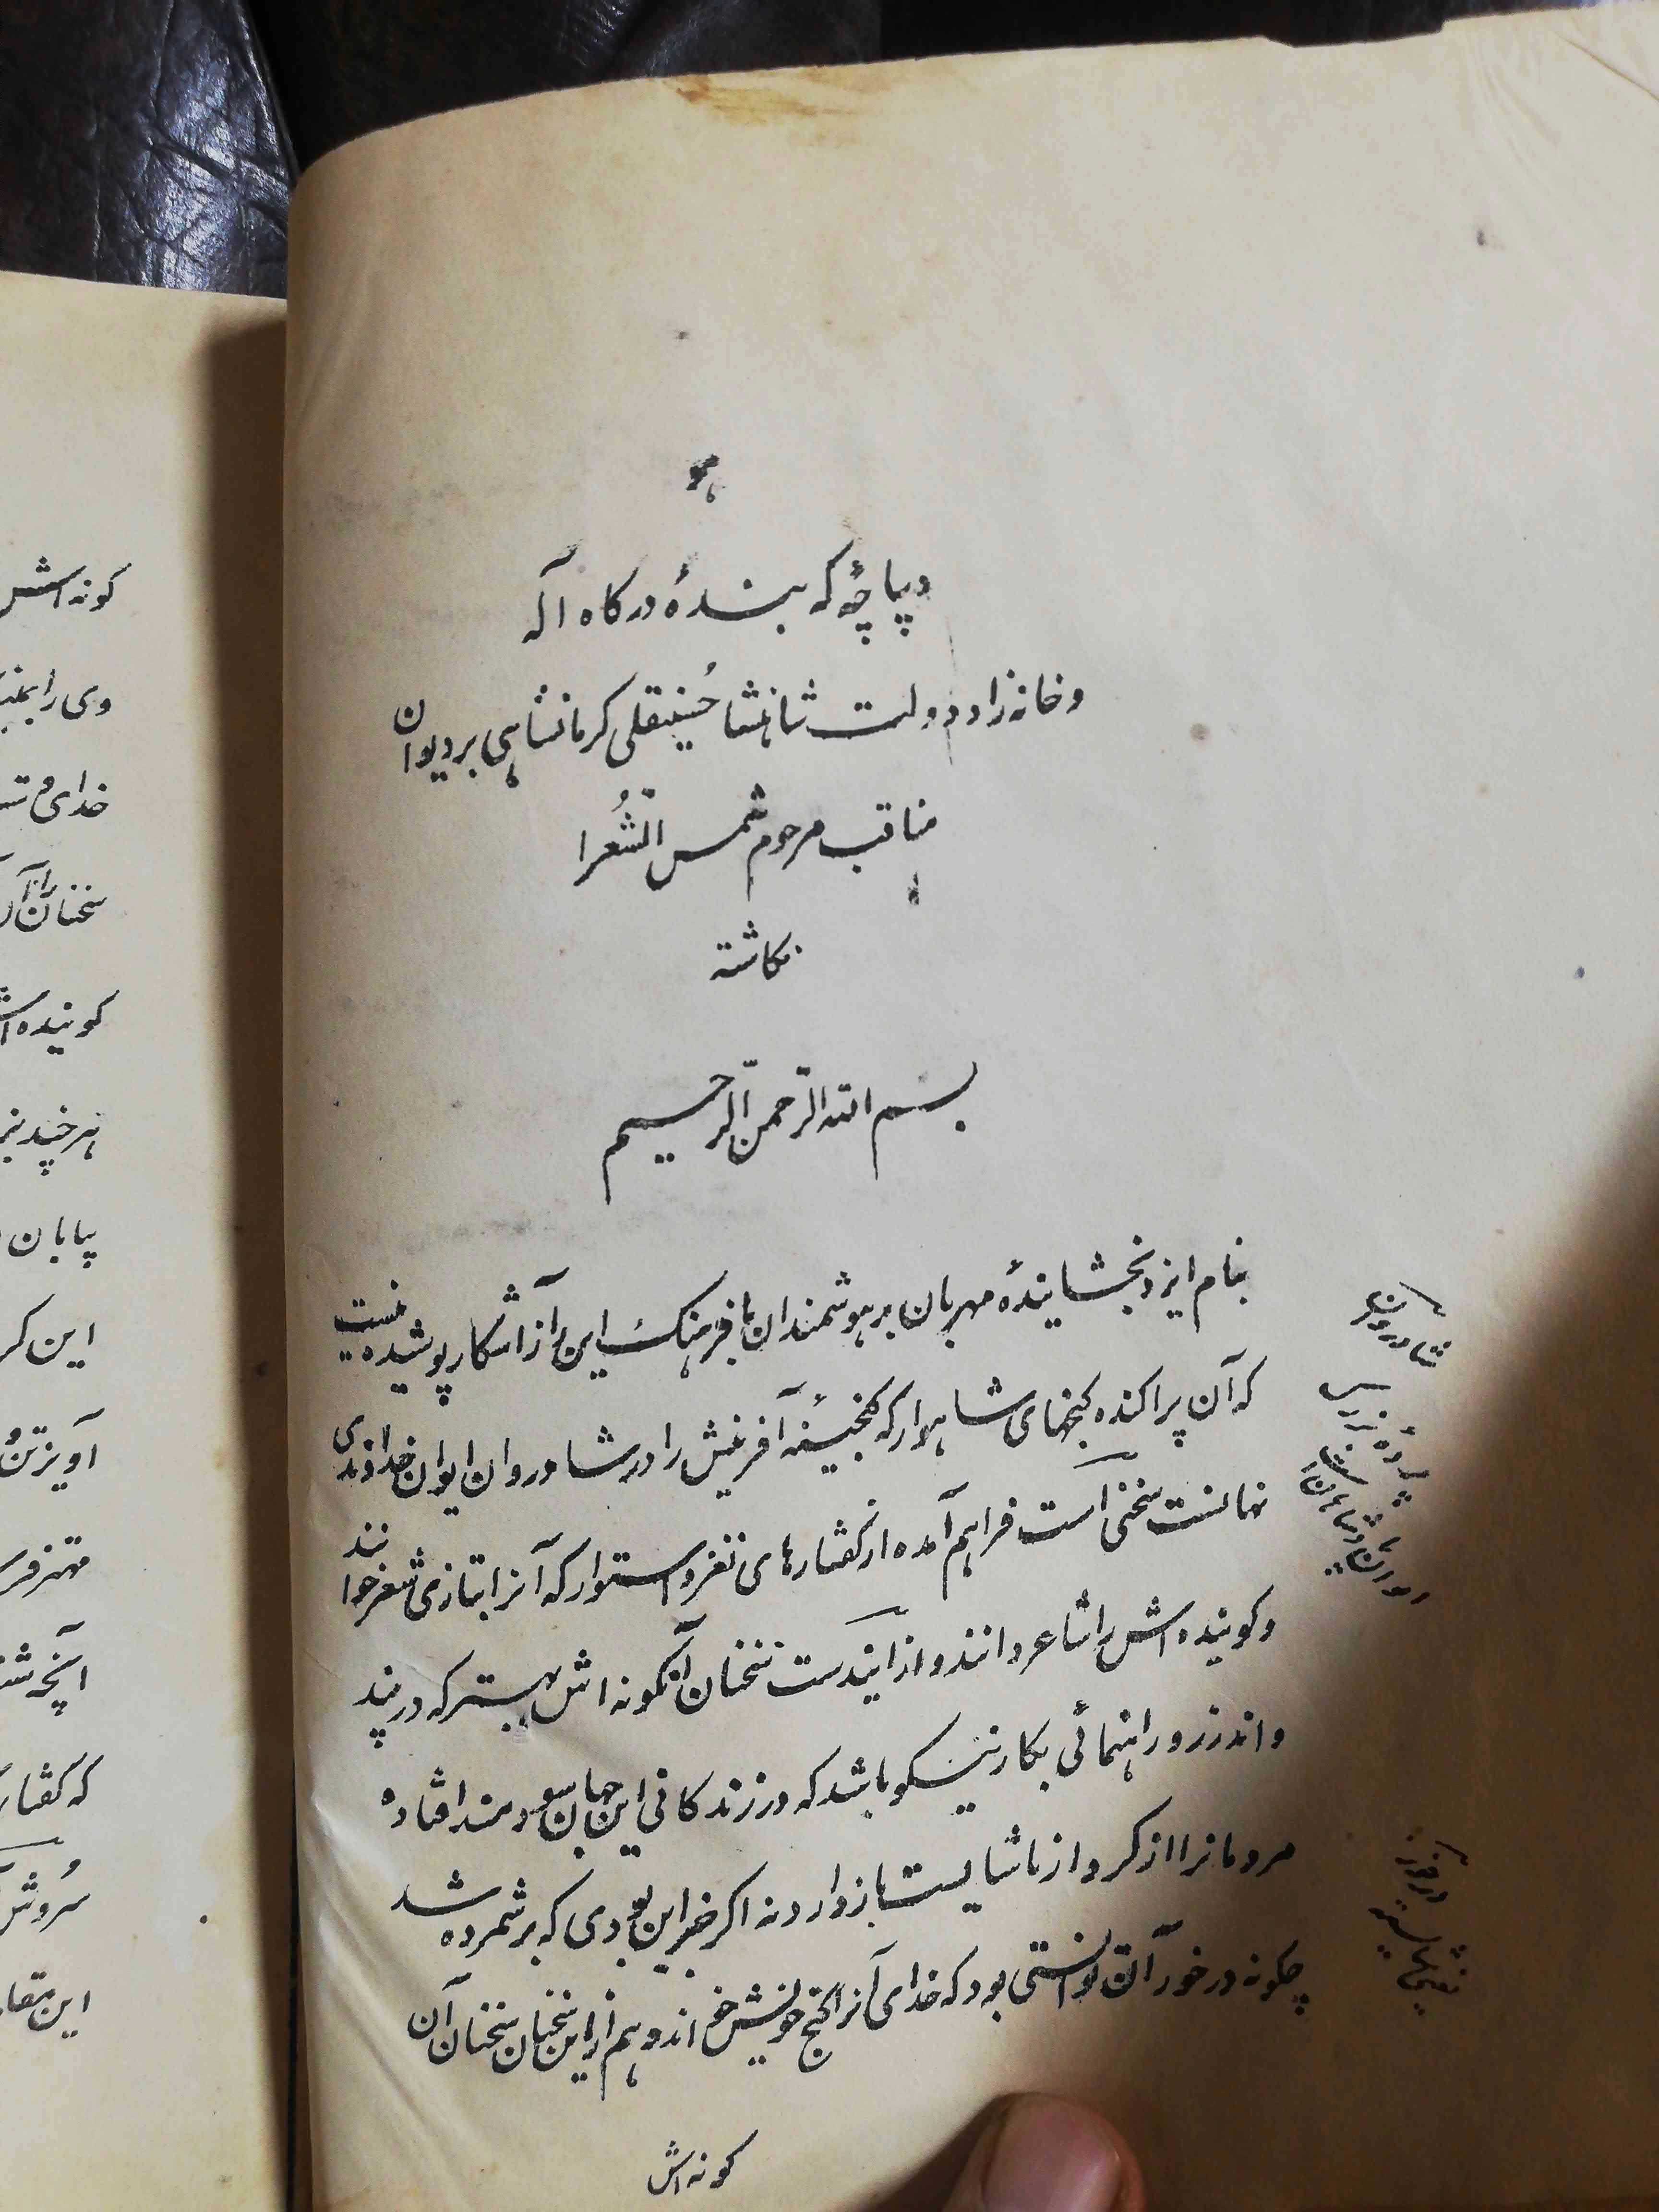 هو
دیباچهٔ که بندهٔ درگاه آله
و خانه زاد دولت شاهنشا حُسینقلی کرمانشاهی بر دیوان
مناقب مرحوم شمس الشُّعرا
نگاشته
بسم الله الرّحمن الرّحیم
بنام ایزد بخشایندهٔ مهربان بر هوشمندان با فرهنگ این راز آشکار پوشیده نیست
که آن پراکنده گنجهای شاهوار که گنجینهٔ آفرینش را در شادروان ایوان خداوندی
نهانست سخنی است فراهم آمده از گفتارهای نغز و استوار که آنرا بتازی شعر خوانند
و گوینده اش را شاعر دانند و از ایندست سخنان آنگونه اش بهتر که در پند
و اندرز و راهنمائی بکار نیکو باشد که در زندگانی این جهان سودمند افتاده
مردمانرا از کردار ناشایست باز دارد نه اگر جز این بودی که بر شمرده شد
چگونه در خور آن توانستی بود که خدای آنرا گنج خویش خواند و هم از این سخنان سخنان آن
گونه اش
شادروان
پردهٔ بزرگ
درخور
گونه اش
وی را
خدای
سخنان
گوینده
هر چند
پایان
این
آنچه
که گفتار
سُروش
این